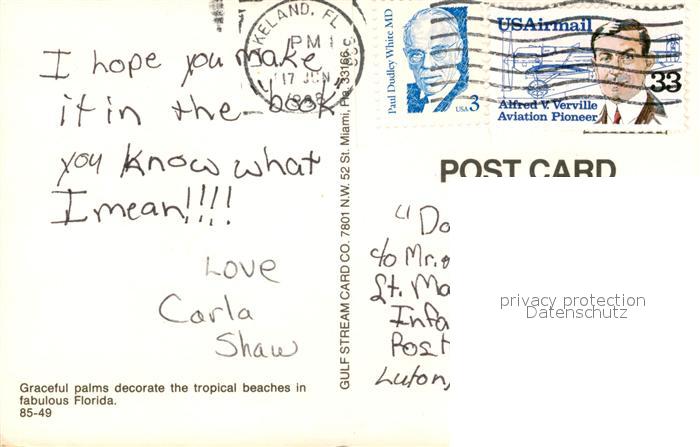 I hope you make
it in the book
you know what
I mean!!!!
Love
Carla
Shaw
Graceful palms decorate the tropical beaches in
fabulous Florida.
85-49
GULF STREAM CARD CO. 7801 N.W. 52 St. Miami, Fla. 33166
KELAND, FL
PM
17 JUN
Paul Dudley White MD
USA 3
USAirmail
33
Alfred V. Verville
Aviation Pioneer
POST CARD
"Do
c/o Mr.
St. Ma
Infa
Post
Luton,
privacy protection
Datenschutz